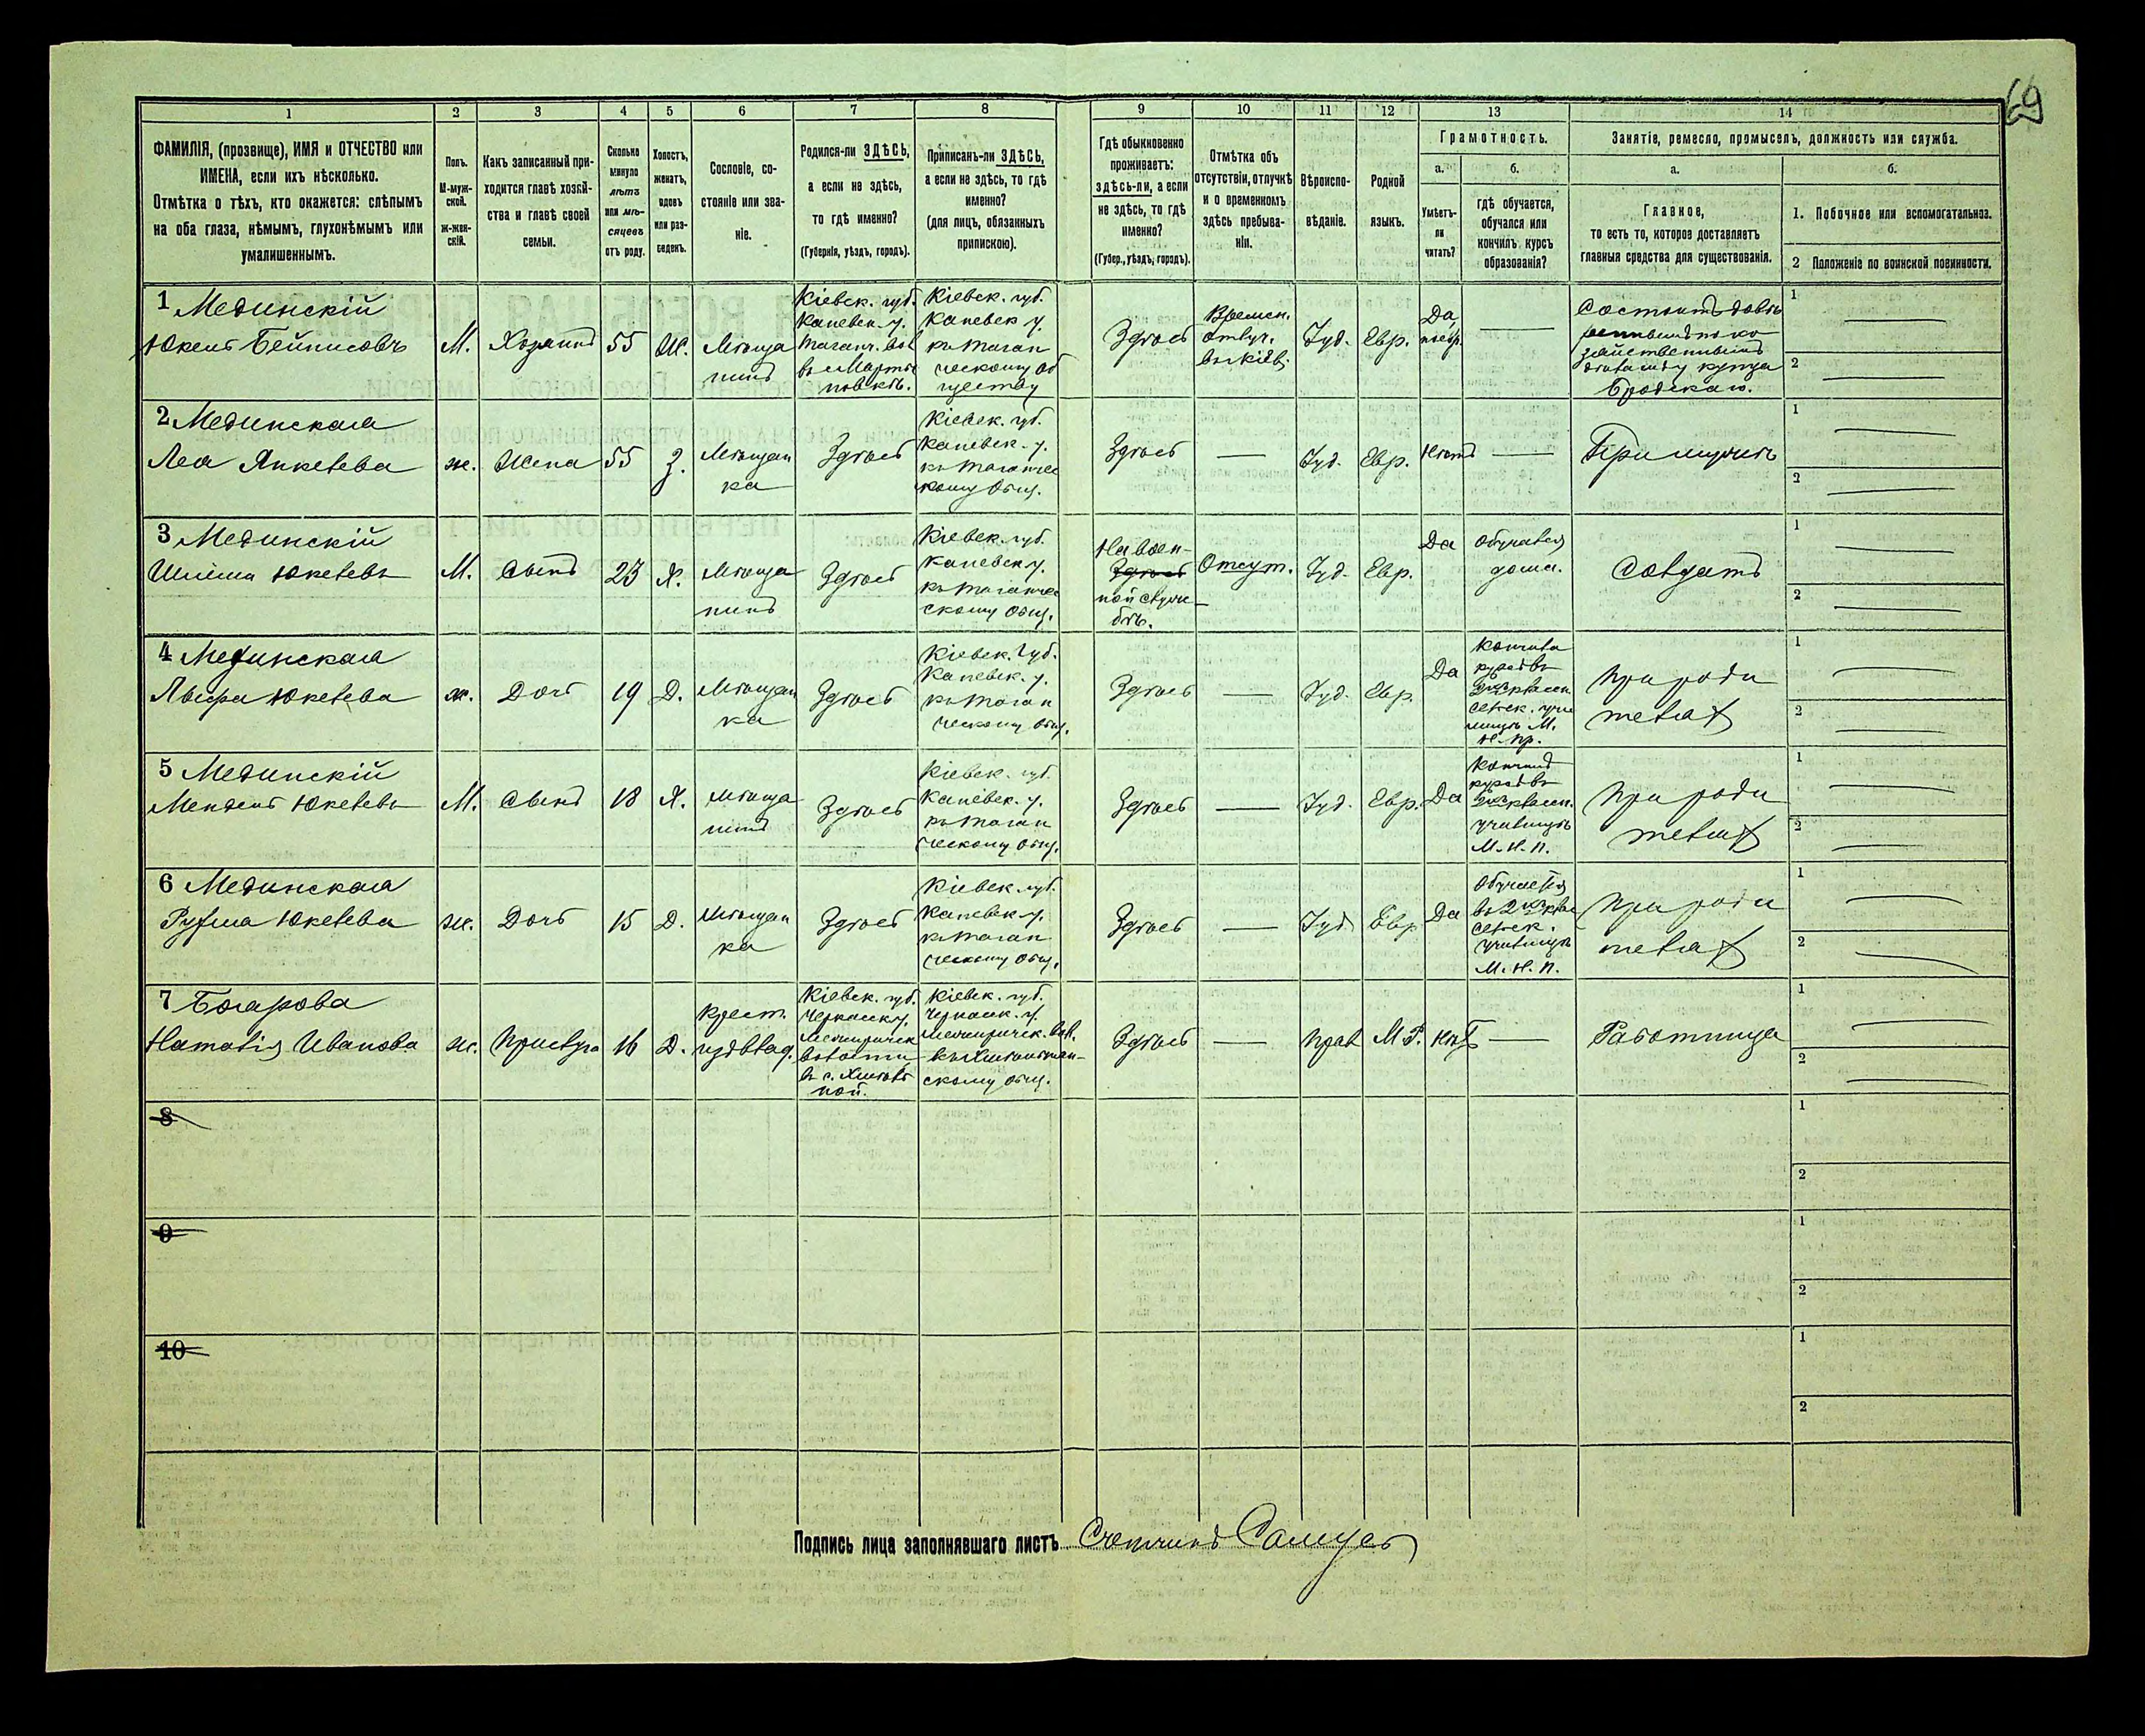 69
1
2
3
4
5
6
7
8
9
10
11
12
13
14
ФАМИЛІЯ, (прозвище), ИМЯ и ОТЧЕСТВО или
ИМЕНА, если ихъ нѣсколько.
Отмѣтка о тѣхъ, кто окажется: слѣпымъ
на оба глаза, нѣмымъ, глухонѣмымъ или
умалишеннымъ.
Полъ.
М-муж-
ской.
Ж-жен-
скій.
Какъ записанный при-
ходится главѣ хозяй-
ства и главѣ своей
семьи.
Сколько
минуло
лѣтъ
или мѣ-
сяцевъ
отъ роду.
Холостъ,
женатъ,
вдовъ
или раз-
веденъ.
Сословіе, со-
стояніе или зва-
ніе.
Родился-ли ЗДѢСЬ,
а если не здѣсь,
то гдѣ именно?
(Губернія, уѣздъ, городъ).
Приписанъ-ли ЗДѢСЬ,
а если не здѣсь, то гдѣ
именно?
(для лицъ, обязанныхъ
припискою).
Гдѣ обыкновенно
проживаетъ:
здѣсь-ли, а если
не здѣсь, то гдѣ
именно?
(Губер., уѣздъ, городъ).
Отмѣтка объ
отсутствіи, отлучкѣ
и о временномъ
здѣсь пребыва-
ніи.
Вѣроиспо-
вѣданіе.
Родной
языкъ.
Грамотность.
а.
Умѣетъ-
ли
читать?
б.
гдѣ обучается,
обучался или
кончилъ курсъ
образованія?
Занятіе, ремесло, промыселъ, должность или служба.
а.
Главное,
то есть то, которое доставляетъ
главныя средства для существованія.
б.
1. Побочное или вспомогательное.
2 Положеніе по воинской повинности.
1 Мединскій
Юкель Бейнисовъ
М.
Хозяинъ
55
Ж.
Мѣща
нинъ
Кіевск. губ.
Каневск. у.
Таганч. вол
въ Марты
новкѣ.
Кіевск. губ.
Каневск у.
къ Таган
ческому об
ществу
Здѣсь
Времен.
отлуч.
въ Кіев.
Іуд.
Евр.
Да,
по евр.
Состоитъ довѣ
реннымъ по хо
зяйственнымъ
дѣламъ у купца
Бродскаго.
1
2
2 Мединская
Леа Янкелева
ж.
Жена
55
З.
Мѣщан
ка
Здѣсь
Кіевск. губ.
Каневск. у.
къ Таганчес
кому Общ.
Здѣсь
Іуд.
Евр.
Нѣтъ
При мужѣ
1
2
3 Мединскій
Шлема Юкелевъ
М.
Сынъ
23
Х.
Мѣща
нинъ
Здѣсь
Кіевск. губ.
Каневск у.
къ Таганче
скому Общ.
На воен-
Здѣсь
ной служ-
бѣ.
Отсут.
Іуд.
Евр.
Да
Обучался
дома.
Солдатъ
1
2
4 Мединская
Юкелева
ж.
Дочь
19
Д.
Мѣщан
ка
Здѣсь
Кіевск. губ.
Каневск. у.
къ Таган
ческому Общ.
Здѣсь
Іуд.
Евр.
Да
Кончила
курсъ въ
2хъ классн
сельск. учи
лищѣ М.
Н. Пр.
При роди
теляхъ
1
2
5 Мединскій
Мендель Юкелевъ
М.
Сынъ
18
Х.
Мѣща
нинъ
Здѣсь
Кіевск. губ.
Каневск. у.
къ Таган
ческому Общ.
Здѣсь
Іуд.
Евр.
Да
Кончилъ
курсъ въ
2хъ классн.
училищѣ
М. Н. П.
При роди
теляхъ
1
2
6 Мединская
Рухля Юкелева
ж.
Дочь
15
Д.
Мѣщан
ка
Здѣсь
Кіевск. губ.
Каневск у.
къ Таган
ческому Общ.
Здѣсь
Іуд.
Евр
Да
Обучается
въ 2хъ клас
сельск.
училищѣ
М. Н. П.
При роди
теляхъ
1
2
7
Наталія Иванова
ж.
Прислуга
16
Д.
Крест.
изъ влад.
Кіевск. губ.
Черкасск у.
Межиричск
волости
въ с. Хмѣль
ной.
Кіевск. губ.
Черкасск. у.
Межиричск. вол.
къ Хмѣльнян-
скому Общ.
Здѣсь
Прав
М. Р.
Нѣтъ
Работница
1
2
8
1
2
9
1
2
10
1
2
Подпись лица заполнявшаго листъ Счетчикъ Самусь